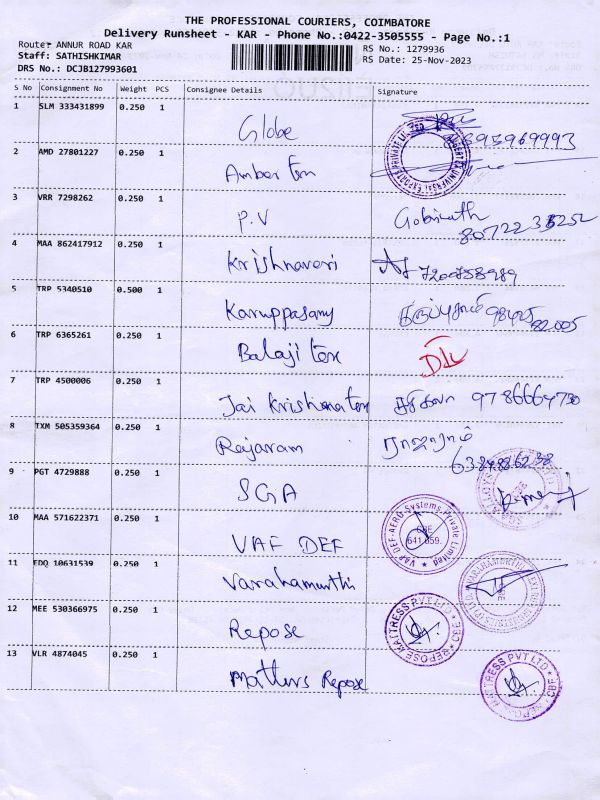 THE PROFESSIONAL COURIERS, COIMBATORE
Delivery Runsheet - KAR - Phone No.:0422-3505555 - Page No.:1
Route: ANNUR ROAD KAR
RS No.: 1279936
Staff: SATHISHKIMAR
RS Date: 25-Nov-2023
DRS No.: DCJB127993601
S No Consignment No Weight PCS Consignee Details Signature
1 SLM 333431899 0.250 1 Globe
2 AMD 27801227 0.250 1 Amber tex
3 VRR 7298262 0.250 1 P.V Gobinath
4 MAA 862417912 0.250 1 Krishnaveri 7200758989
5 TRP 5340510 0.500 1 Karuppasamy கருப்பசாமி
6 TRP 6365261 0.250 1 Balaji tex
7 TRP 4500006 0.250 1 Jai Krishna tex சசிகலா 9786664730
8 TXM 505359364 0.250 1 Rajaram ராஜாராம்
6384886238
9 PGT 4729888 0.250 1 SGA
10 MAA 571622371 0.250 1 VAF DEF VAF DEF-AERO Systems Private Limited CBE 641 059.
11 EDQ 10631539 0.250 1 Varahamurthi
12 MEE 530366975 0.250 1 Repose REPOSE MATTRESS PVT LTD CBE
13 VLR 4874045 0.250 1 Mattress Repose REPOSE MATTRESS PVT LTD CBE